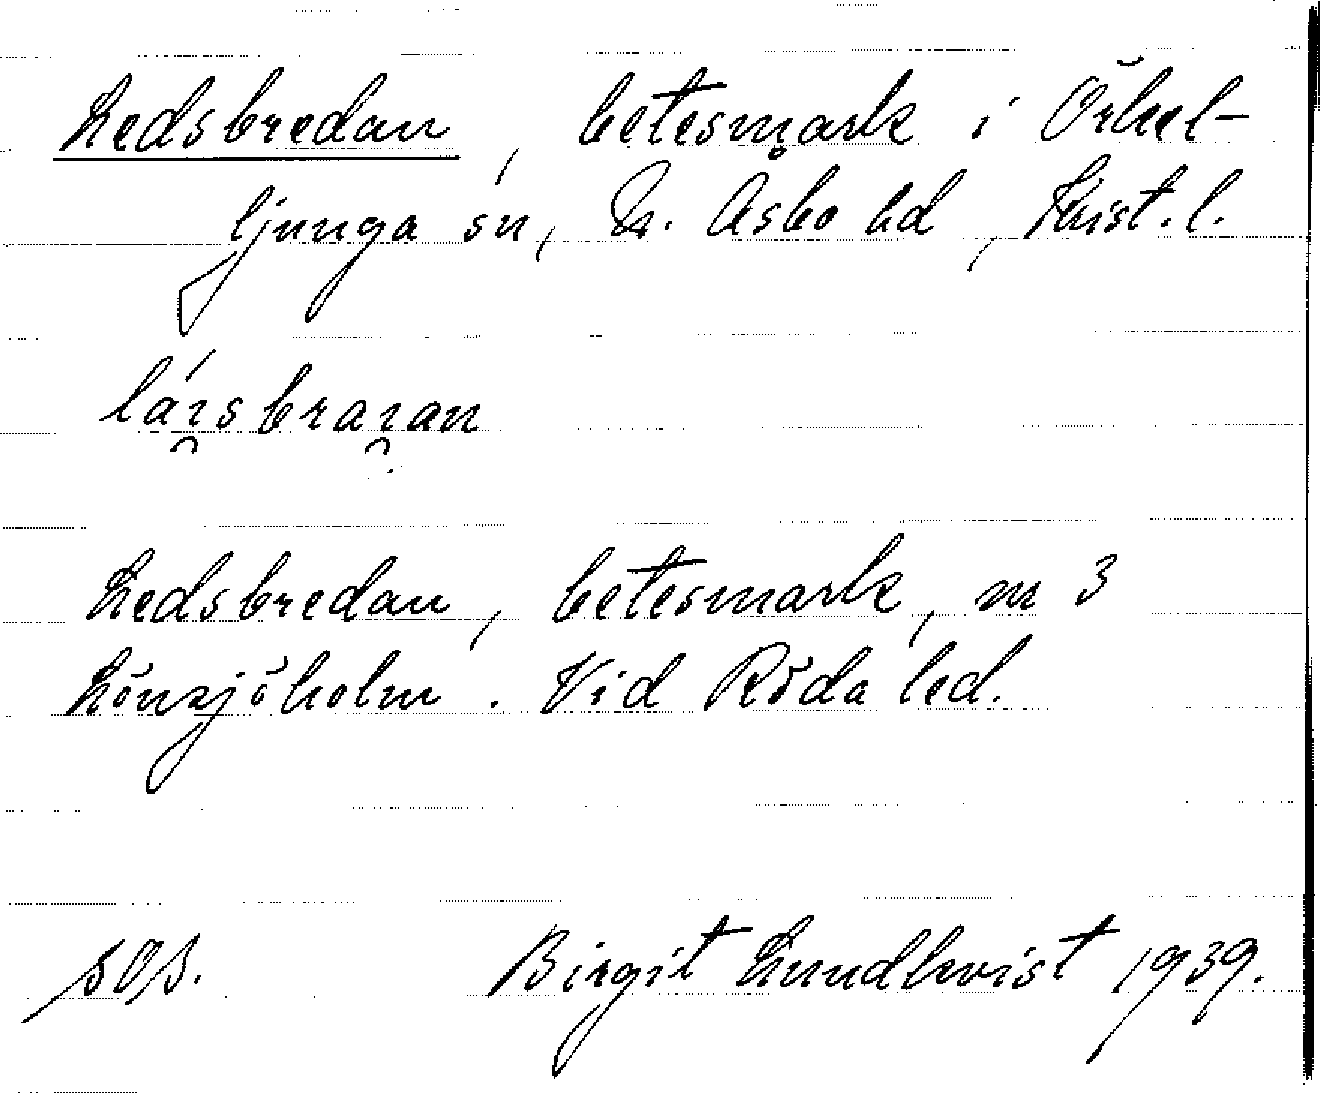 Ledsbredan, betesmark i Örkel-
ljunga sn, N. Åsbo hd, Krist. l.
lá̯ısbra̯ıan
Ledsbredan, betesmark, nr 3
Lönsjöholm. Vid Röda led.
SOS. Birgit Lundkvist 1939.